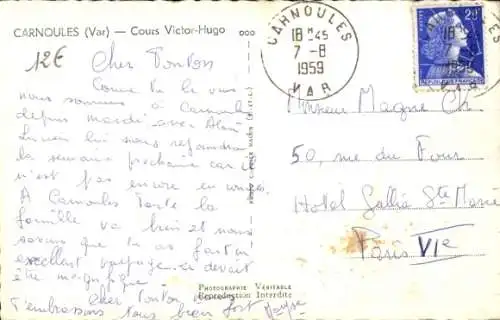 CARNOULES (Var) — Cours Victor-Hugo
12€
CARNOULES
18H45
7-8
1959
VAR
20F
Cher Tonton
Comme tu le vois
nous sommes à Carnoules
depuis mardi avec Alain
Lucien lui nous rejoindra
la semaine prochaine car il
n'est pas encore en
A Carnoules toute la
famille va bien et nous
que tu as fait un
excellent voyage. ce devait
être magnifique.
Cher Tonton
t'embrassons tous bien fort
Photographie Véritable
Reproduction Interdite
Monsieur Magne Ch
50, rue du Four
Hôtel Gallia Ste Marie
Paris VIe